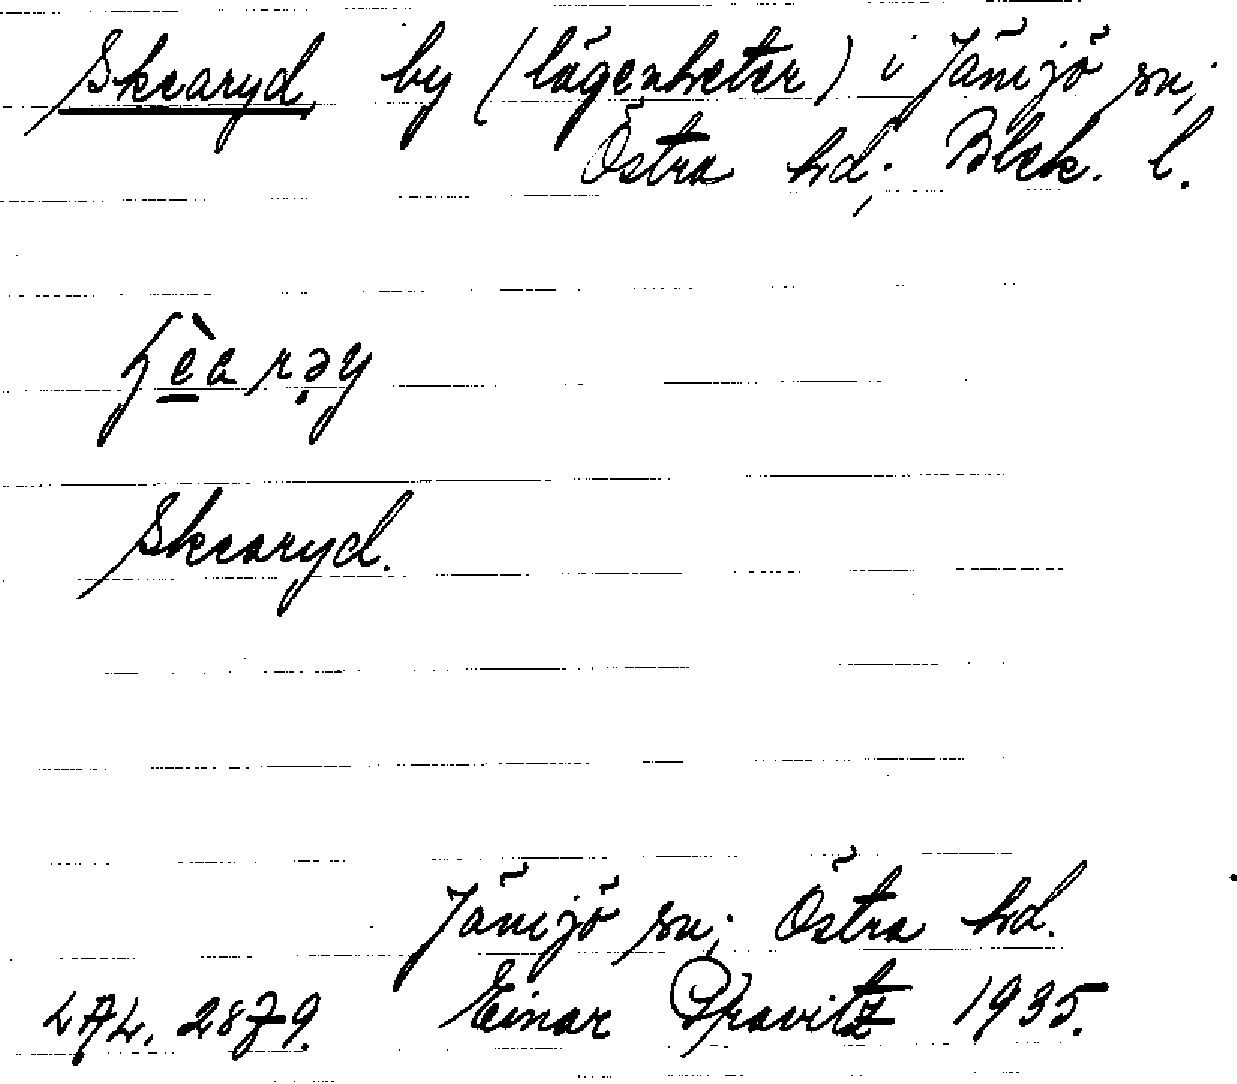 Skearyd by (lägenheter) i Jämjö sn;
Östra hd; Blek. l.
Skearyd.
Jämjö sn; Östra hd.
LAL. 2879. Einar Kravitz 1935.